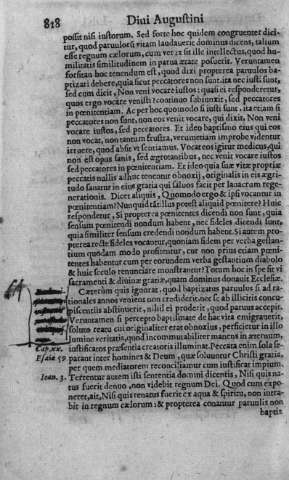 818 Diui Augustini
possit nisi iustorum. Sed forte hoc quidem congruenter dici-
tur, quod paruulos vitam laudauerit dominus dicens, talium
esse regnum cælorum, cum vere sit ille intellectus, quod hu-
militatis similitudinem in parua ætate posuerit. Veruntamen
forsitan hoc tenendum est, quod dixi propterea paruulos ba-
ptizari debere, quia sicut peccatores non sunt, ita nec iusti sunt,
sed cum dicit, Non veni vocare iustos: quasi ei responderetur,
quos ergo vocare venisti? continuo subiunxit, sed peccatores
in pœnitentiam. Ac per hoc quomodo si iusti sunt, ita etiam si
peccatores non sunt, non eos venit vocare, qui dixit, Non veni
vocare iustos, sed peccatores. Et ideo baptismo eius qui eos
non vocat, non tantum frustra, verumetiam improbe videntur
irruere, quod absit vt sentiamus. Vocat eos igitur medicus, qui
non est opus sanis, sed ægrotantibus, nec venit vocare iustos
sed peccatores in pœnitentiam. Et ideo quia suæ vitæ propriæ
peccatis nullis adhuc tenentur obnoxij, originalis in eis ægri-
tudo sanatur in eius gratia qui saluos facit per lauacrum rege-
nerationis. Dicet aliquis, Quomodo ergo & ipsi vocantur in
pœnitentiam? Nunquid tantillus potest aliquid pœnitere? Huic
respondetur, Si propterea pœnitentes dicendi non sunt, quia
sensum pœnitendi nondum habent, nec fideles dicendi sunt,
quia similiter sensum credendi nondum habent. Si autem pro-
pterea recte fideles vocantur, quoniam fidem per verba gestan-
tium quodam modo profitentur, cur non prius etiam pœni-
tentes habentur cum per eorundem verba gestantium diabolo
& huic seculo renunciare monstrantur? Totum hoc in spe fit vi
sacramenti & diuinæ gratiæ, quam dominus donauit Ecclesiæ.
Cæterum quis ignorat, quod baptizatus paruulus si ad ra-
tionales annos veniens non crediderit, nec se ab illicitis concu-
piscentiis abstinuerit, nihil ei proderit, quod paruus accepit.
Veruntamen si percepto baptismate de hac vita emigrauerit,
soluto reatu cui originaliter erat obnoxius, perficietur in illo
lumine veritatis, quod incommutabiliter manens in æternum,
Cap. xx. iustificatos præsentia creatoris illuminat. Peccata enim sola se-
Esaiæ 59 parant inter homines & Deum, quæ soluuntur Christi gratia,
per quem mediatorem reconciliamur cum iustificat impium.
Ioan. 3. Terrentur autem isti sententia domini dicentis, Nisi quis na-
tus fuerit denuo, non videbit regnum Dei. Quod cum expo-
neret, ait, Nisi quis renatus fuerit ex aqua & spiritu, non intra-
bit in regnum cælorum: & propterea conantur paruulis non
baptiz